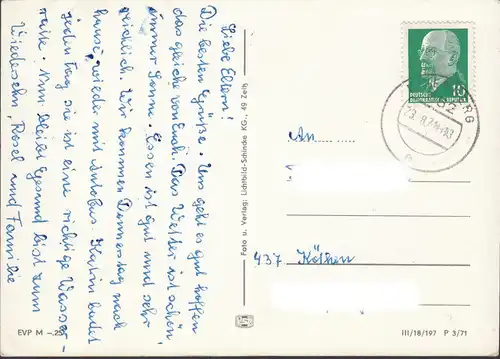 Liebe Eltern!
Die besten Grüße. Uns geht es gut hoffen
das gleiche von Euch. Das Wetter ist schön,
immer Sonne. Essen ist gut und sehr
reichlich. Wir kommen Donnerstag nach
hause, wieder mit Autobus. Katrin badet
jeden Tag sie ist eine richtige Wasser-
ratte. Nun bleibt Gesund bist zum
Wiedersehn, Rosel und Familie
EVP M -.25
Foto u. Verlag: Lichtbild-Schincke KG., 49 Zeitz
10
DEUTSCHE
DEMOKRATISCHE REPUBLIK
An
437 Köthen
III/18/197 P 3/71